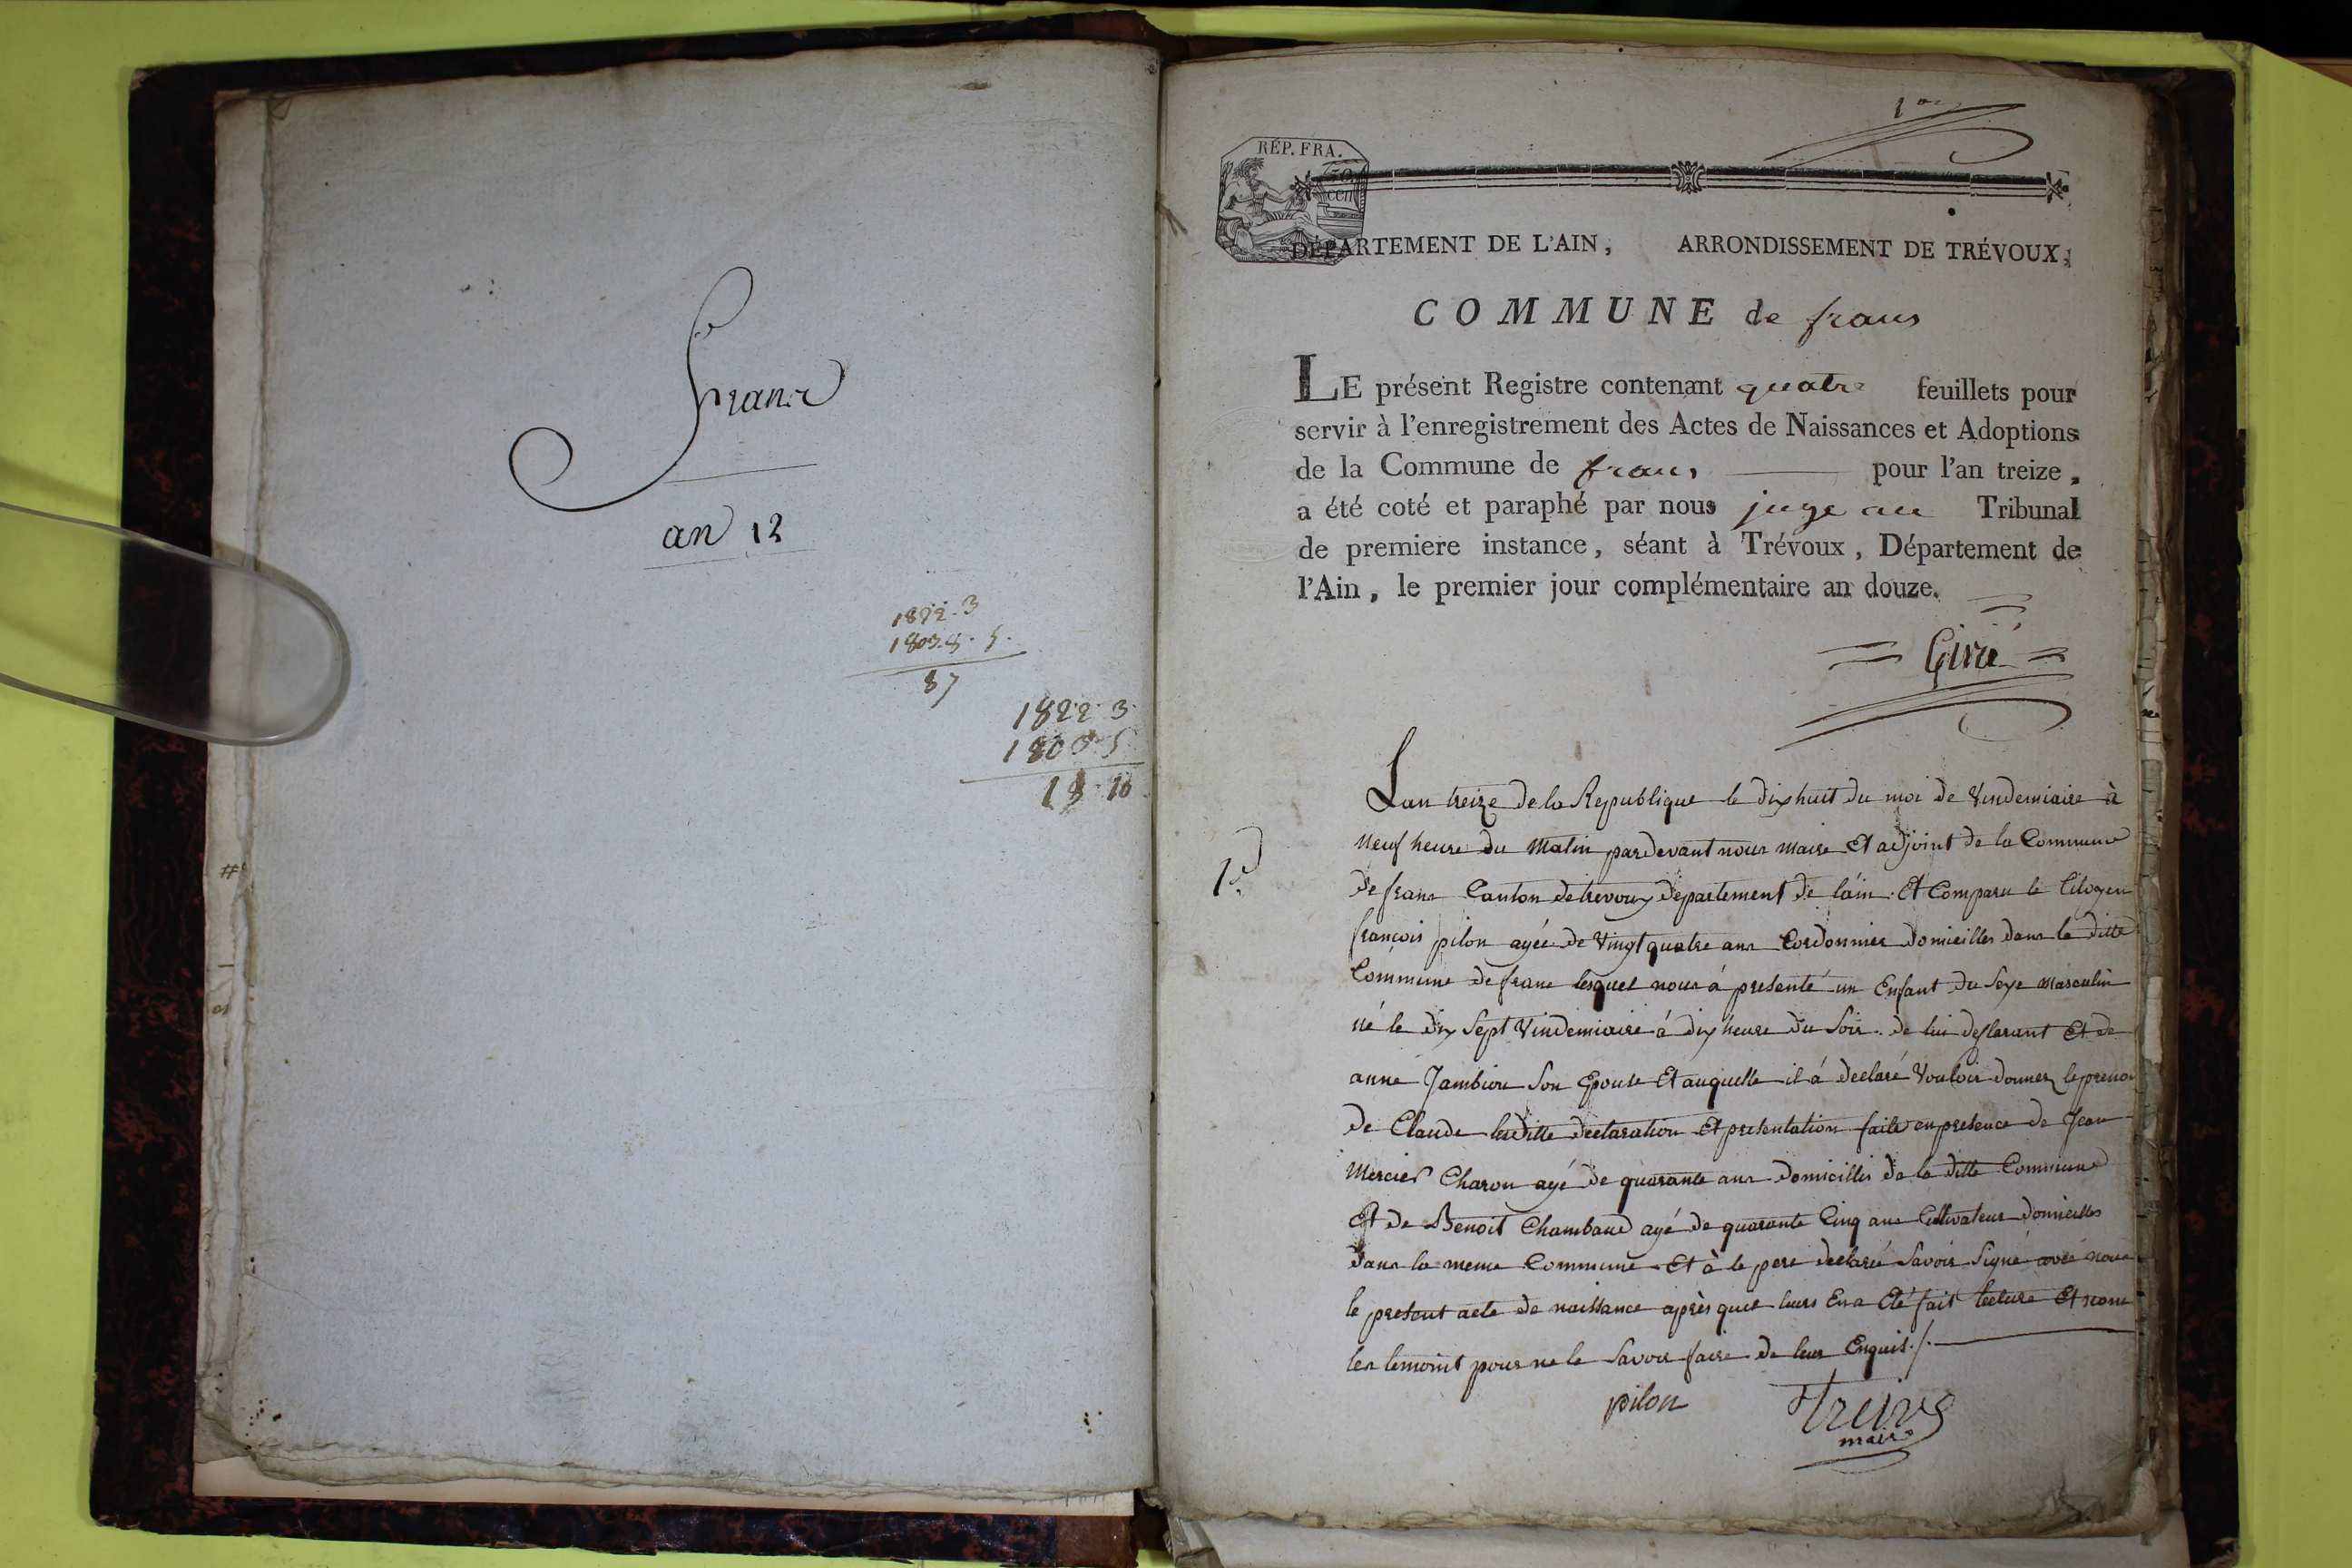 Frans
an 12
1822. 3
1803. 8. 5.
87
1822. 3.
1803. 5
18. 10
1er
RÉP. FRA.
DÉPARTEMENT DE L'AIN, ARRONDISSEMENT DE TRÉVOUX,
COMMUNE de frans
LE présent Registre contenant quatre feuillets pour
servir à l'enregistrement des Actes de Naissances et Adoptions
de la Commune de frans pour l'an treize,
a été coté et paraphé par nous juge au Tribunal
de premiere instance, séant à Trévoux, Département de
l'Ain, le premier jour complémentaire an douze.
Givré
Lan treize de la Republique le dix huit du moi de Vindemiaire à
neuf heure du Matin pardevant nous maire Et adjoint de la Commune
1er
de frans Canton de trevoux departement de láin. Et Comparu le Citoyen
françois pilon agée de Vingt quatre ans Cordonnier domicilles dans la ditte
Commune de frans lesquel nous á presenté un Enfant du Sexe masculin
né le dix Sept Vindemiaire á dix heure du Soir. de lui desclarant Et de
anne Jambion Son Epouse Et auquelle il á declaré Vouloir donner le preno
de Claude laditte declaration Et presentation faite en presence de Jean
Mercier Charon agé de quarante ans domicilles de la ditte Commune
Et de Benoit Chambaud agé de quarante Cinq ans Cultivateur domicilles
dans la meme Commune. Et à le pere declaré Savoir Signé avec nous
le present acte de naissance après quee leurs En a Eté fait lecture Et nonc
les temoint pour ne le Savoir faire de leur Enquis./.
pilon
maire